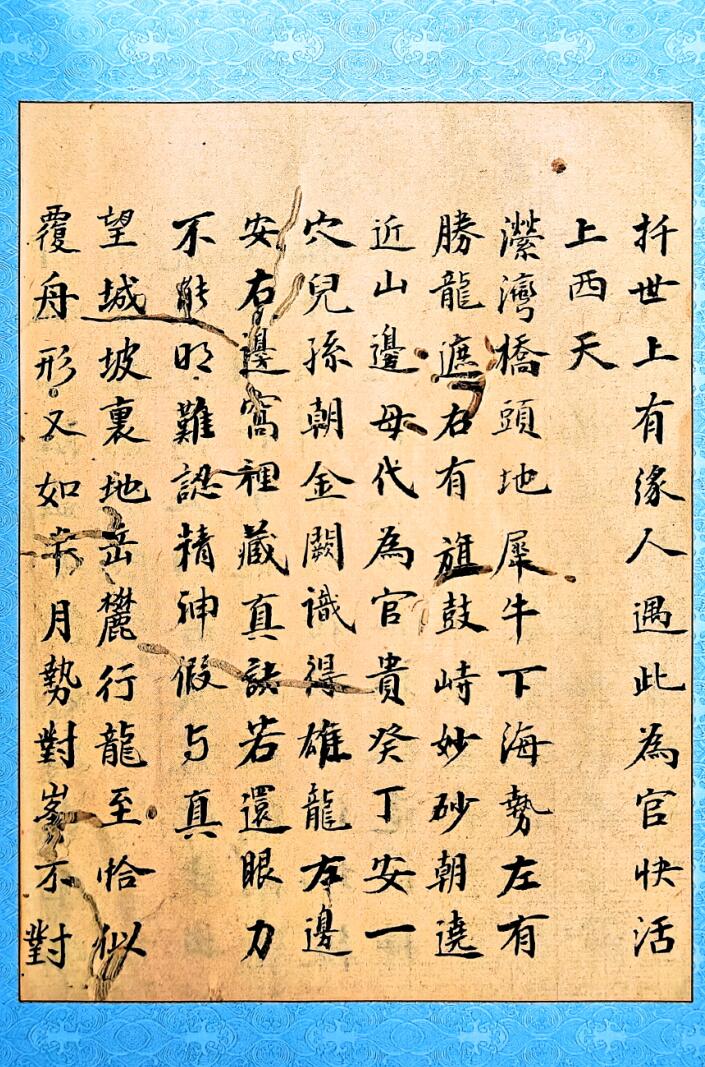 扦世上有缘人遇此為官快活
上西天
濚灣橋頭地犀牛下海勢左有
勝龍遮右有旗鼓峙妙砂朝遶
近山邊母代為官貴癸丁安一
穴兒孫朝金闕識得雄龍左邊
安右邊窩裡藏真訣若還眼力
不能明難認精神假与真
望城坡裏地岳麓行龍至恰似
覆舟形又如半月勢對峯不對